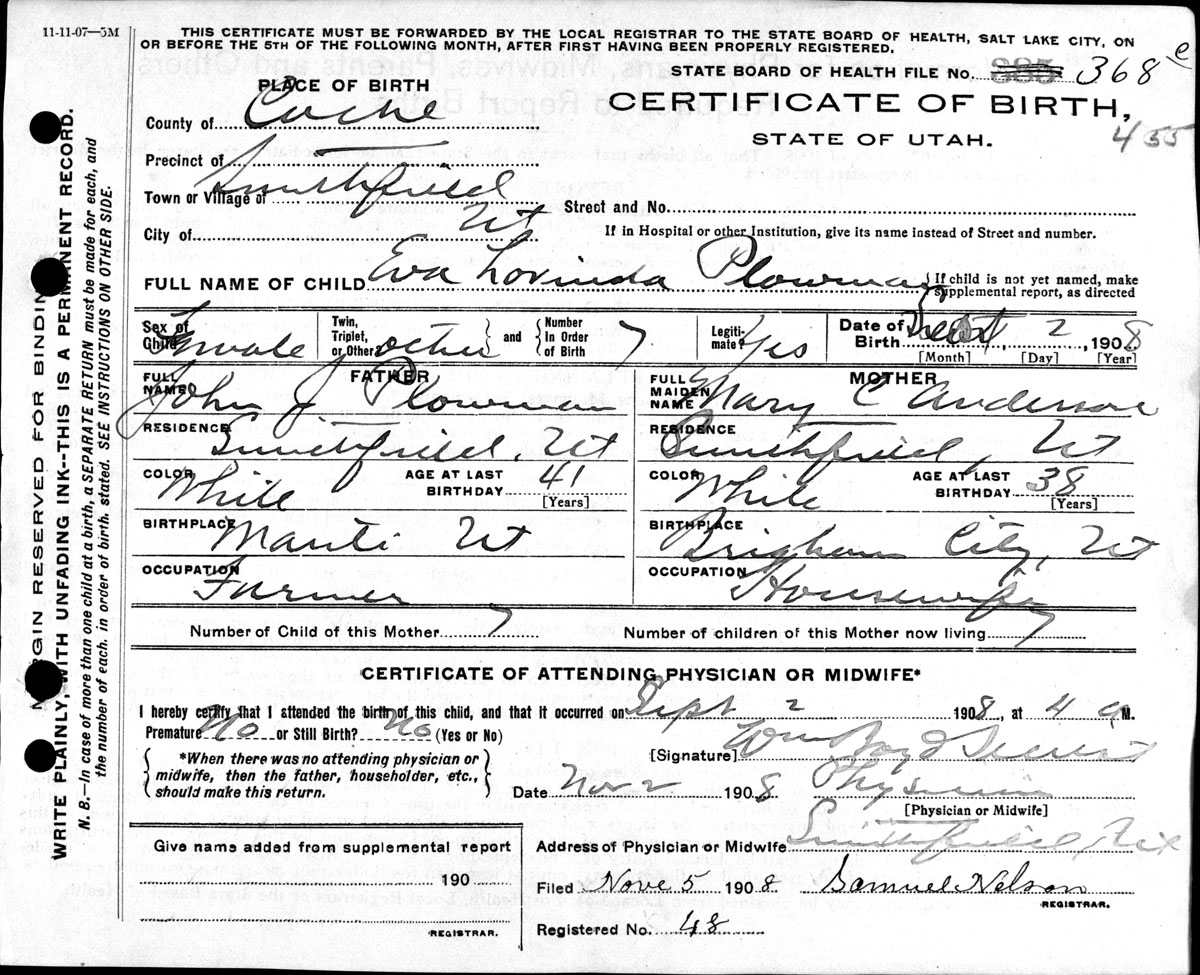 11-11-07—5M
THIS CERTIFICATE MUST BE FORWARDED BY THE LOCAL REGISTRAR TO THE STATE BOARD OF HEALTH, SALT LAKE CITY, ON
OR BEFORE THE 5TH OF THE FOLLOWING MONTH, AFTER FIRST HAVING BEEN PROPERLY REGISTERED.
STATE BOARD OF HEALTH FILE No. 385 368 e
CERTIFICATE OF BIRTH,
STATE OF UTAH.
455
PLACE OF BIRTH
County of Cache
Precinct of
Town or Village of Smithfield
Ut
City of
Street and No.
If in Hospital or other Institution, give its name instead of Street and number.
FULL NAME OF CHILD Eva Lovinda Plowman { If child is not yet named, make
supplemental report, as directed
Sex of Child Female
Twin, Triplet, or Other other } and { Number In Order of Birth 7
Legitimate? Yes
Date of Birth Sept 2 1908
[Month] [Day] [Year]
FATHER
FULL NAME John J Plowman
RESIDENCE Smithfield, Ut
COLOR White AGE AT LAST BIRTHDAY 41 [Years]
BIRTHPLACE Manti Ut
OCCUPATION Farmer
MOTHER
FULL MAIDEN NAME Mary C Anderson
RESIDENCE Smithfield, Ut
COLOR White AGE AT LAST BIRTHDAY 38 [Years]
BIRTHPLACE Brigham City, Ut
OCCUPATION Housewife
Number of Child of this Mother 7 Number of children of this Mother now living 7
CERTIFICATE OF ATTENDING PHYSICIAN OR MIDWIFE*
I hereby certify that I attended the birth of this child, and that it occurred on Sept 2 1908, at 4 a M.
Premature No or Still Birth? No (Yes or No)
{ *When there was no attending physician or
midwife, then the father, householder, etc.,
should make this return. }
[Signature]
Date Nov 2 1908 Physician
[Physician or Midwife]
Give name added from supplemental report
190
REGISTRAR.
Address of Physician or Midwife Smithfield, Ut
Filed Nove 5 1908 Samuel Nelson
REGISTRAR.
Registered No. 48
MARGIN RESERVED FOR BINDING
WRITE PLAINLY, WITH UNFADING INK--THIS IS A PERMANENT RECORD.
N. B.—In case of more than one child at a birth, a SEPARATE RETURN must be made for each, and
the number of each, in order of birth, stated. SEE INSTRUCTIONS ON OTHER SIDE.